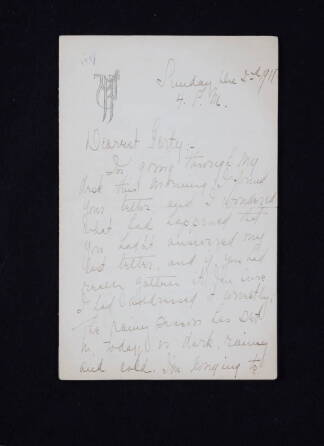 Sunday Dec 3rd 1911
4. P.M.
Dearest Gerty:-
In going through my
desk this morning, I found
your letter, and I wondered
what had happened that
you hadn't answered my
last letter, and if you had
really gotten it. I'm sure
I had addressed it correctly.
The rainy season has set
in, today is dark, rainy
and cold. I'm longing to